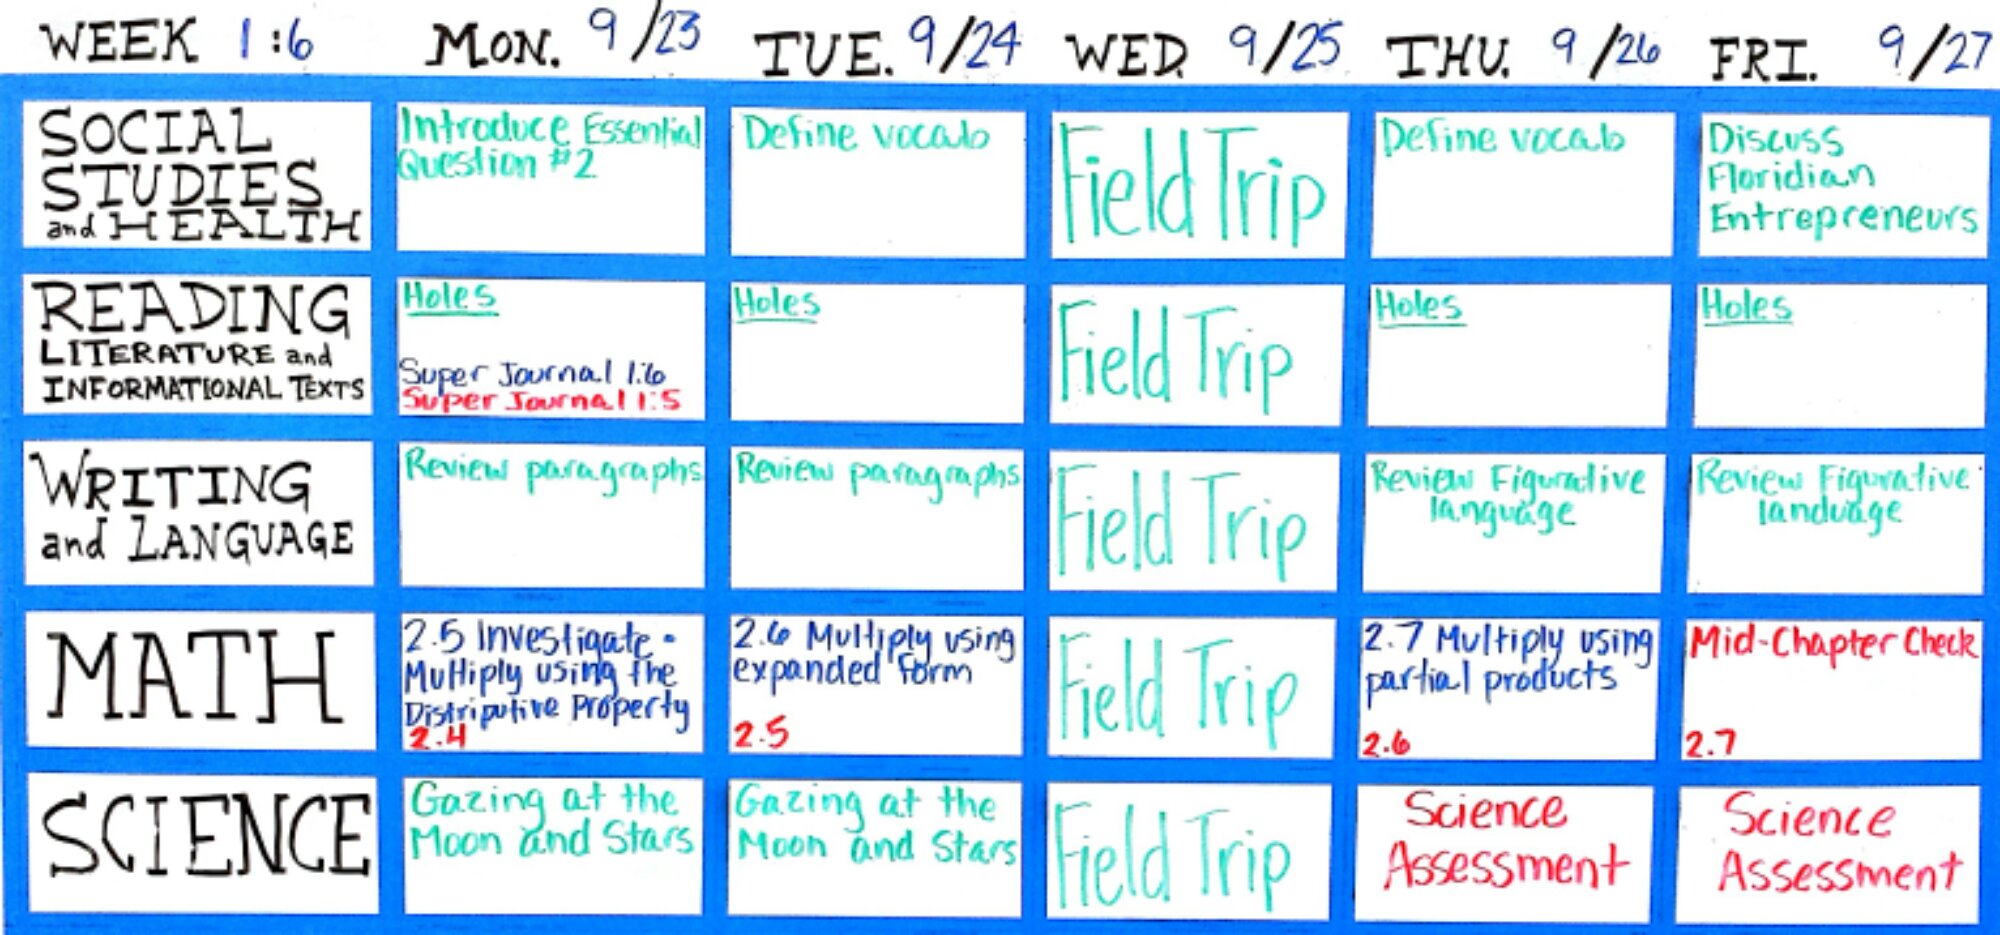 WEEK 1:6 MON. 9/23 TUE. 9/24 WED. 9/25 THU. 9/26 FRI. 9/27
SOCIAL
STUDIES
and HEALTH
Introduce Essential
Question #2
Define vocab
Field Trip
Define vocab
Discuss
Floridian
Entrepreneurs
READING
LITERATURE and
INFORMATIONAL TEXTS
Holes
Super Journal 1:6
Super Journal 1:5
Holes
Field Trip
Holes
Holes
WRITING
and LANGUAGE
Review paragraphs
Review paragraphs
Field Trip
Review Figurative
language
Review Figurative
landuage
MATH
2.5 Investigate -
Multiply using the
Distriputive Property
2.4
2.6 Multiply using
expanded form
2.5
Field Trip
2.7 Multiply using
partial products
2.6
Mid-Chapter Check
2.7
SCIENCE
Gazing at the
Moon and Stars
Gazing at the
Moon and Stars
Field Trip
Science
Assessment
Science
Assessment